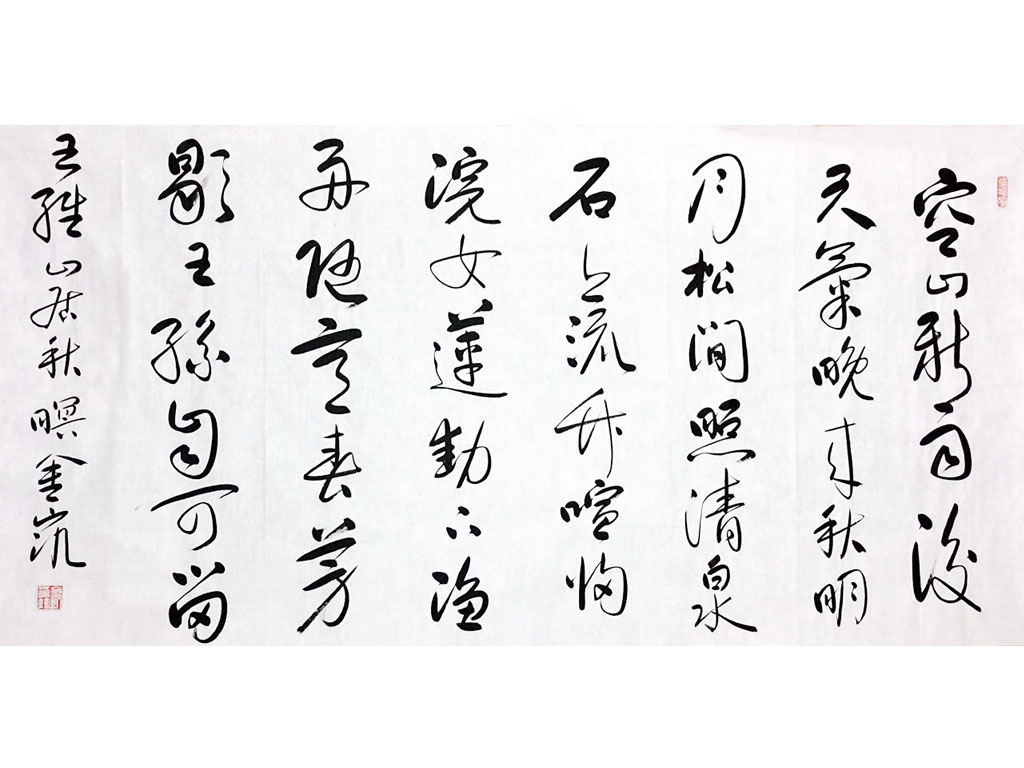 空山新雨後
天氣晚來秋明
月松間照清泉
石上流竹喧歸
浣女蓮動下漁
舟隨意春芳
歇王孫自可留
王維山居秋暝金